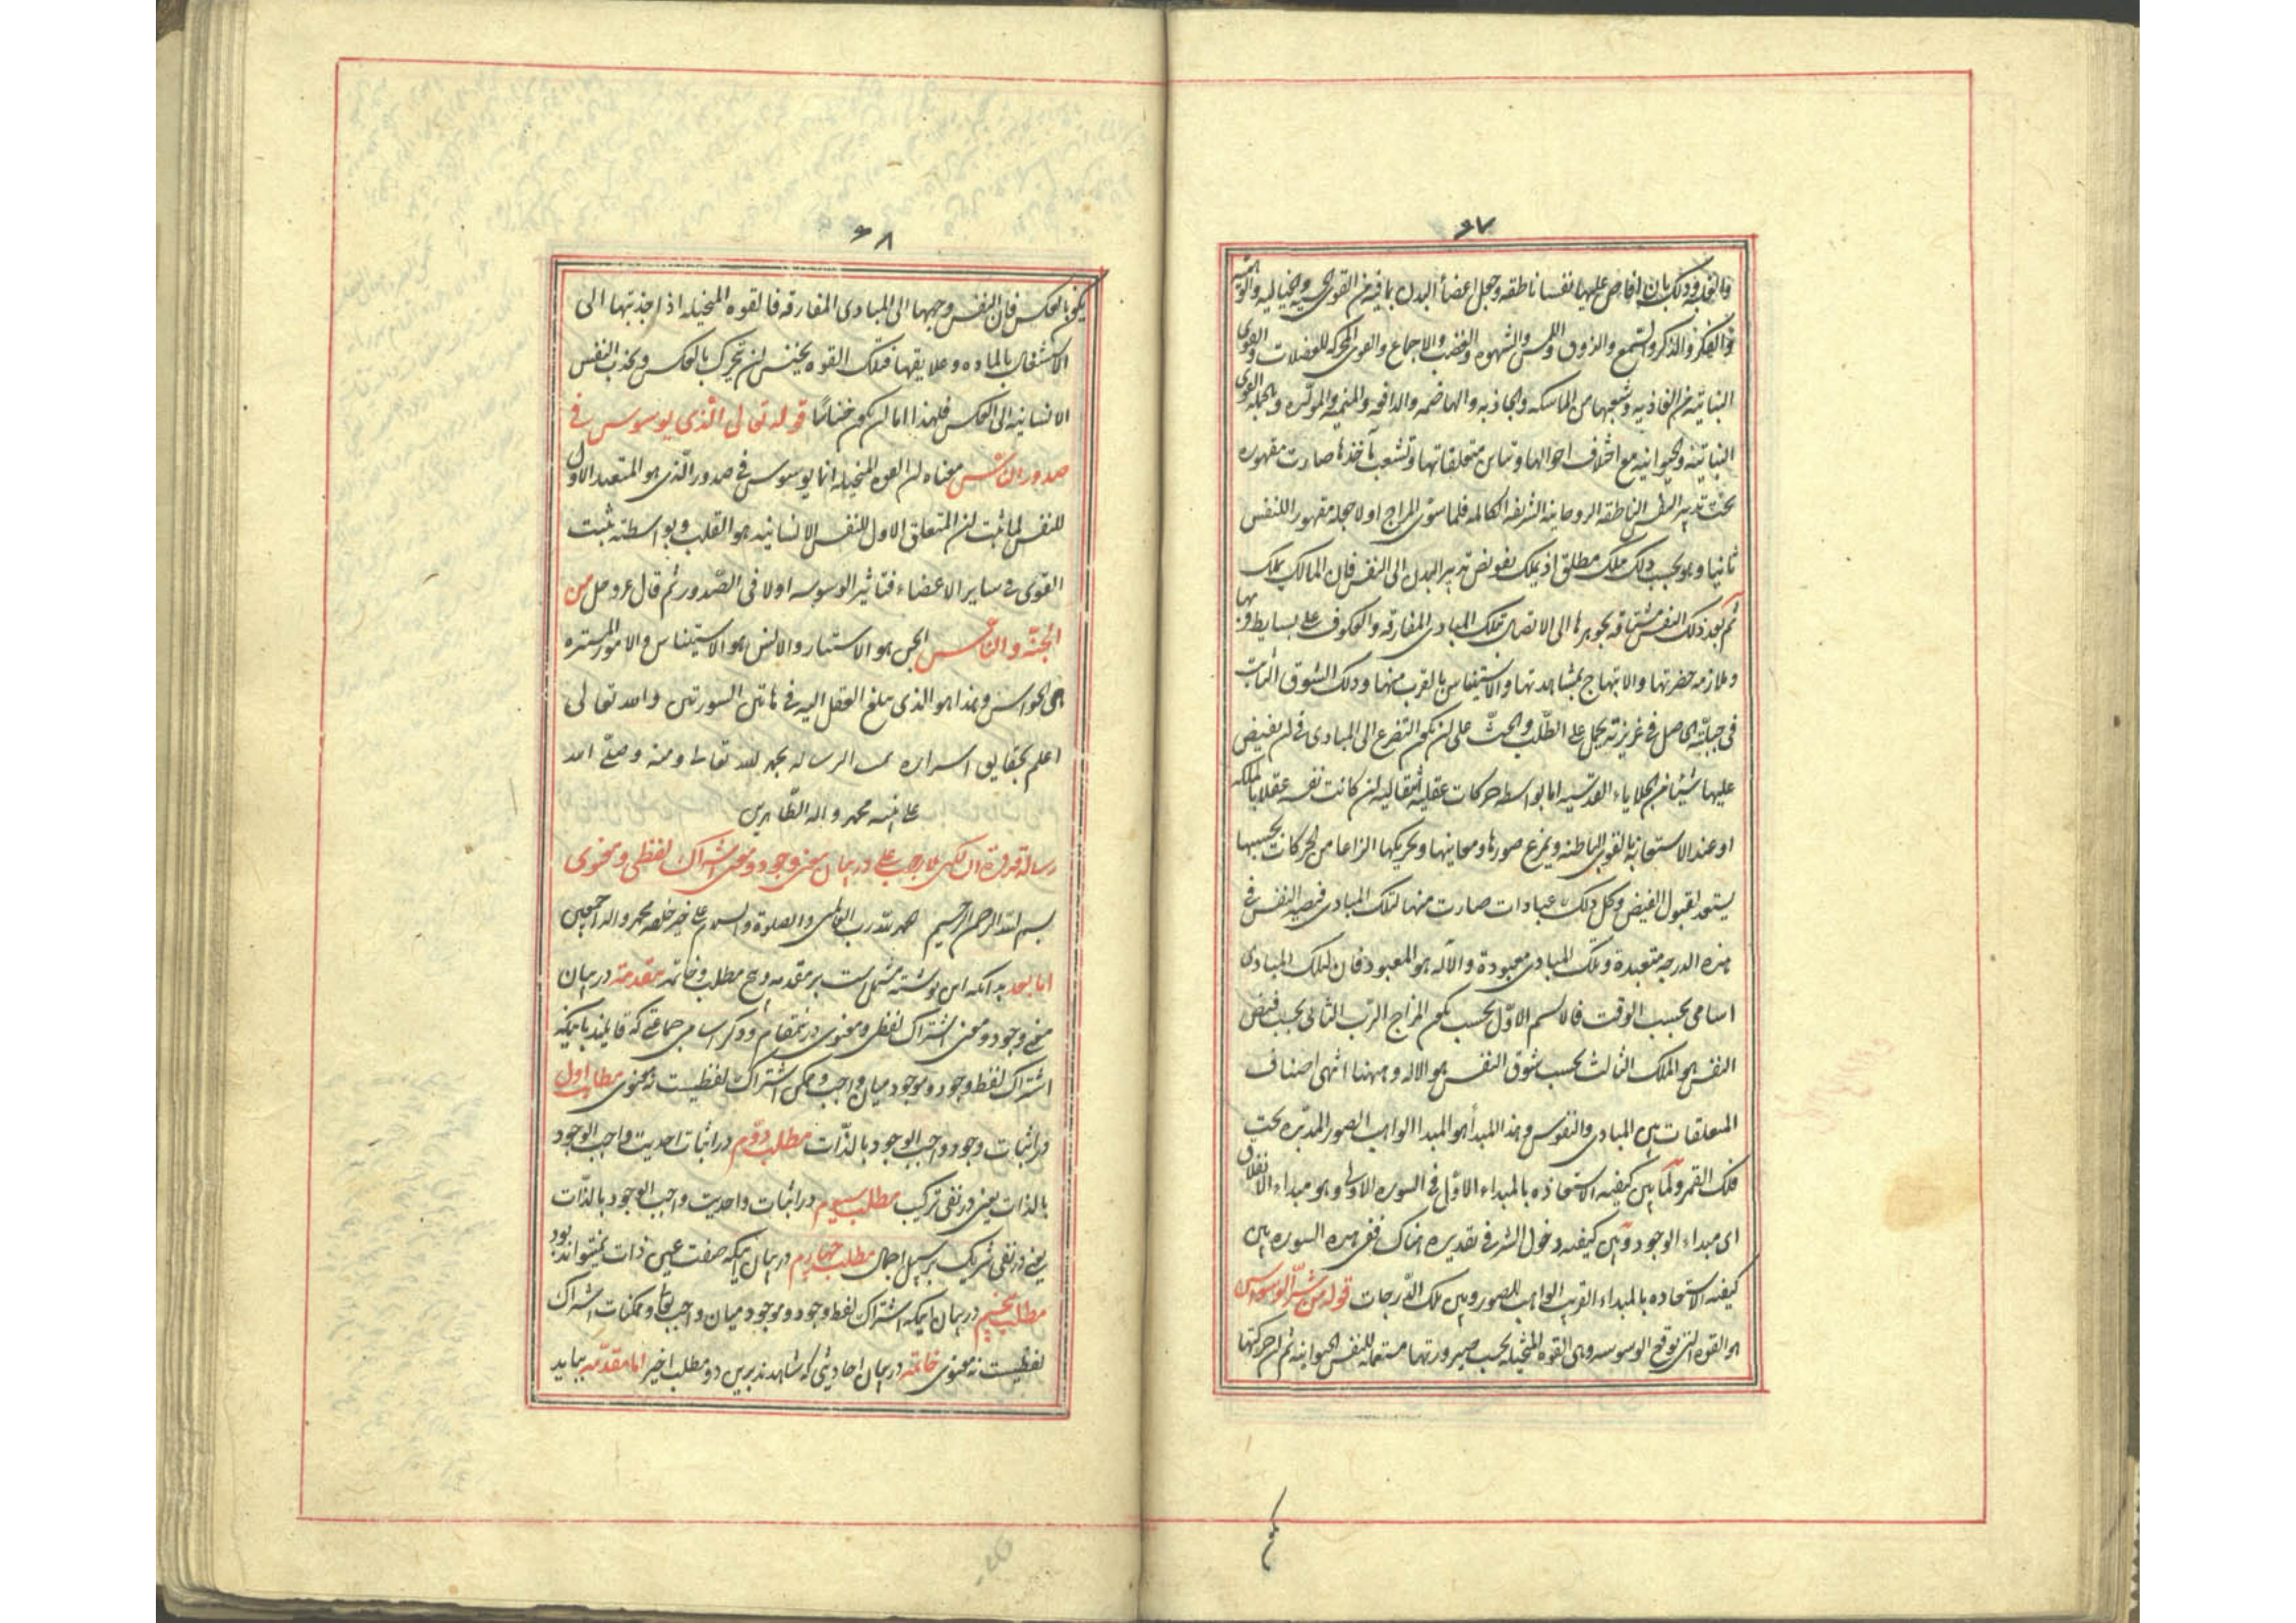 ۶۷
والغلبة وذلك بان افاض عليها نفسا ناطقه وجعل اعضأ البدن بما فيه من القوى الحسيه والخياليه والوهميه
والفكر والذكر والسمع والذوق واللمس والشهوه والغضب والاجماع والقوى المحركه للعضلات والقوى
النباتيّه من الغاذيه وشعبها من الماسكه والجاذبه والهاضمه والدافعه والمنميه والمولّده وبالجمله القوى
النباتيّه والحيوانيه مع اختلاف احوالها وتباين متعلقاتها وتشعب مآخذها صارت مقهوره
تحت تدبير النفس الناطقه الروحانيه الشريفه الكامله فلما سوّى المزاج اولا جعله مقهورا للنفس
ثانيا وهو بحسب ذلك ملك مطلق اذ يملك تفويض تدبير البدن الى النفس فان المالك يملك
ثم بعد ذلك النفس مشتاقه بجوهرها الى الاتصال بتلك المبادى المفارقه والعكوف على بساط قربها
وملازمه حضرتها والابتهاج بمشاهدتها والاستيناس بالقرب منها وذلك الشوق الثابت
فى جبلّته الحاصل فى غريزته يحمل على الطّلب والحثّ على ان يكون التضرع الى المبادى فى ان تفيض
عليها شيئا من الجلايا القدسيه اما بواسطه حركات عقليه انتقاليه ان كانت نفسه عقلا بالملكه
او عند الاستعانه بالقوى الباطنه ويمزج صورها ومعانيها وتحريكها انواعا من الحركات بحسبها
يستعد لقبول الفيض وكل ذلك عبادات صارت منها لتلك المبادى فيصير النفس فى
هذه الدرجه متعبدة وتلك المبادى معبودة والاله هو المعبود فان لتلك المبادى
اسامى بحسب الوقت فالاسم الاوّل بحسب تكون المزاج الرّب الثانى بحسب فيض
النفس هو الملك الثالث بحسب شوق النفس هو الاله وههنا انتهى اصناف
المتعلقات بين المبادى والنفوس وهذا المبدأ هو المبدا الواهب الصور المدبّره تحت
فلك القمر ولمّا بيّن كيفيه الاستعاذه بالمبداء الاوّل فى السوره الاولى وهو مبداء الانفلاق
اى مبداء الوجود وبيّن كيفيه دخول الشر فى تقديره هناك ففى هذه السوره بيّن
كيفيه الاستعاذه بالمبداء القريب الواهب للصور وبين تلك الدّرجات قوله من شرّ الوسواس
هو القوه التى توقع الوسوسه وهى القوه المتخيله بحسب صيرورتها مستعمله للنفس الحيوانيه ثم ان حركتها
۶۸
يكون بالعكس فان النفس وجهها الى المبادى المفارقه فالقوه المتخيله اذا جذبتها الى
الاشتغال بالماده وعلايقها فتلك القوه يخنس ان تحرك بالعكس ويجذب النفس
الانسانيه الى العكس فلهذا اما ان يكون خنّاسًا قوله تعالى الّذى يوسوس فى
صدور الناس معناه ان القوه المتخيله انما يوسوس فى صدور الّذى هو المتعبد الاول
للنفس لما ثبت ان المتعلق الاول للنفس الانسانيه هو القلب وبواسطته تثبت
القوى فى ساير الاعضاء فتاثير الوسوسه اولا فى الصّدور ثم قال عز وجل من
الجنّه والناس الجن هو الاستتار والانس هو الاستيناس والامور المستتره
هى الحواس وهذا هو الذى بلغ العقل اليه فى هاتين السورتين والله تعالى
اعلم بحقايق اسراره تمت الرساله بحمد لله تعالى ومنه وصلّى الله
على نبيه محمد واله الطّاهرين
رساله قدوة الحكماء ملا رجب على در بيان معنى وجود ومعنى اشتراك لفظى ومعنوى
بسم الله الرحمن الرحيم الحمد لله رب العالمين والصلوة والسلام على خير خلقه محمد واله اجمعين
اما بعد بدانكه اين نوشته مشتمل است بر مقدمه و پنج مطلب وخاتمه مقدمة در بيان
معنى وجود ومعنى اشتراك لفظى ومعنوى در ينمقام وذكر اسامى جماعتى كه قايلند باينكه
اشتراك لفظ وجود وموجود ميان واجب وممكن اشتراك لفظيست نه معنوى مطلب اول
در اثبات وجود واجب الوجود بالذّات مطلب دوّم در اثبات احديت واجب الوجود
بالذات يعنى در نفى تركيب مطلب سيوم در اثبات واحديت واجب الوجود بالذّات
يعنى در نفى شريك بر سبيل اجمال مطلب چهارم در بيان اينكه صفت عين ذات نميتواند بود
مطلب پنجم در بيان اينكه اشتراك لفظ وجود وموجود ميان واجب تعالى وممكنات اشتراك
لفظيست نه معنوى خاتمه در بيان احاديثى كه شاهدند برين دو مطلب اخير اما مقدّمه ببايد